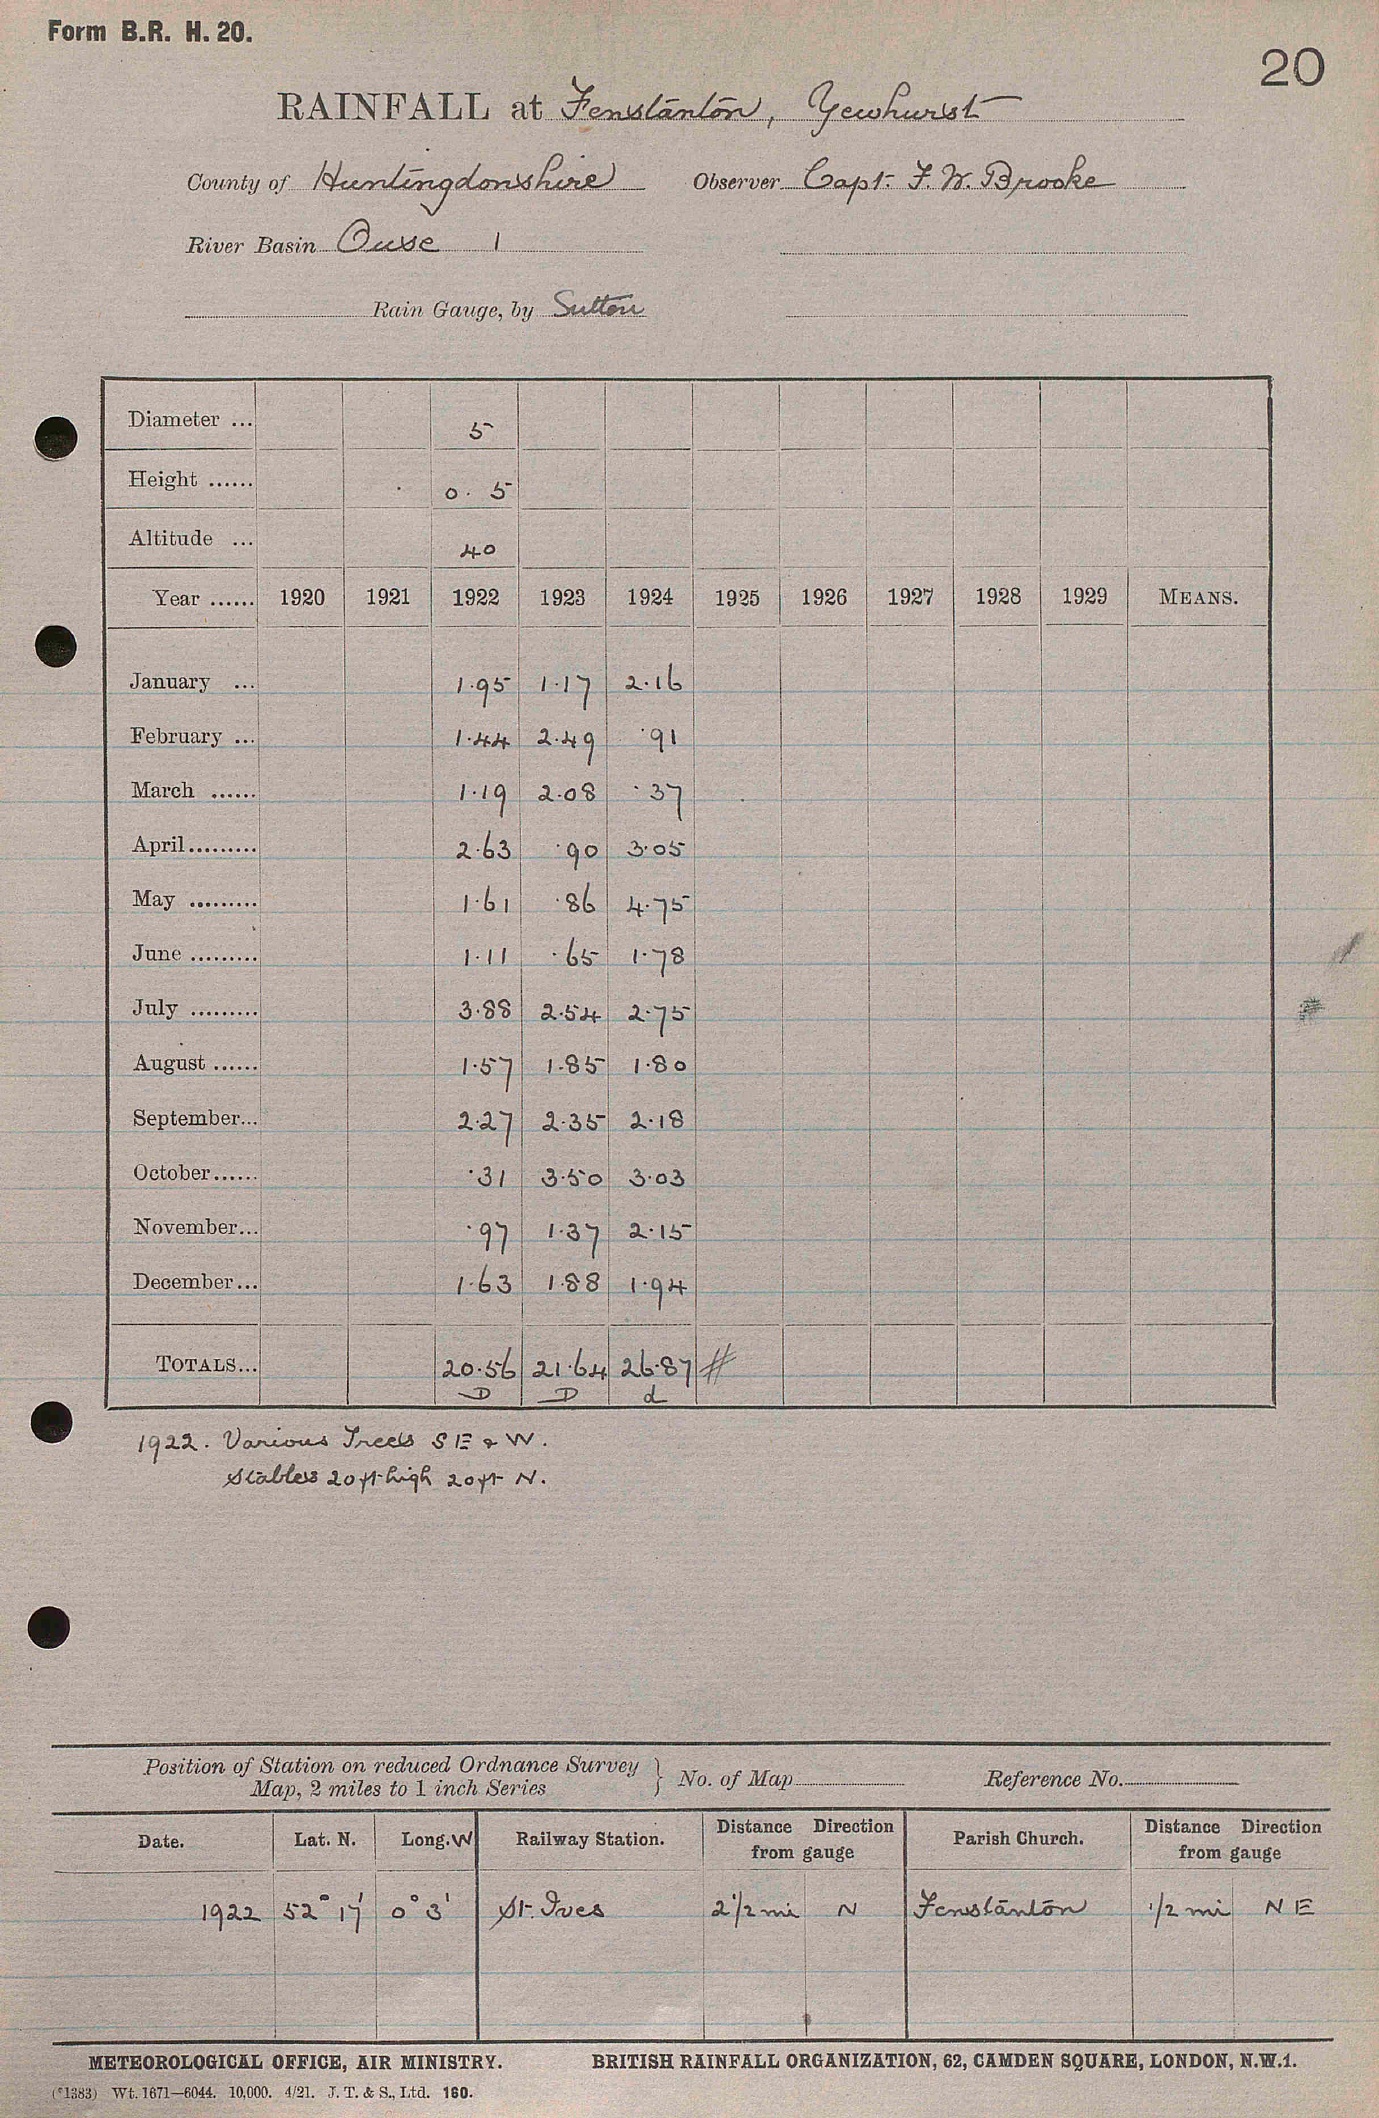 Form B.R. H. 20.
20
RAINFALL at Fenstanton, Yewhurst
County of Huntingdonshire Observer Capt. F. W. Brooke
River Basin Ouse 1
Rain Gauge, by Sutton
Diameter ... 5
Height ...... 0. 5
Altitude ... 40
Year ...... 1920 1921 1922 1923 1924 1925 1926 1927 1928 1929 MEANS.
January ... 1.95 1.17 2.16
February ... 1.44 2.49 .91
March ...... 1.19 2.08 .37
April......... 2.63 .90 3.05
May ......... 1.61 .86 4.75
June ......... 1.11 .65 1.78
July ......... 3.88 2.54 2.75
August ...... 1.57 1.85 1.80
September... 2.27 2.35 2.18
October...... .31 3.50 3.03
November... .97 1.37 2.15
December... 1.63 1.88 1.94
TOTALS... 20.56 21.64 26.87 #
D D d
1922. Various Trees S E & W.
Stables 20 ft high 20 ft N.
Position of Station on reduced Ordnance Survey
Map, 2 miles to 1 inch Series } No. of Map Reference No.
Date. Lat. N. Long. W Railway Station. Distance Direction from gauge Parish Church. Distance Direction from gauge
1922 52° 17' 0° 3' St. Ives 2 1/2 mi N Fenstanton 1/2 mi N E
METEOROLOGICAL OFFICE, AIR MINISTRY. BRITISH RAINFALL ORGANIZATION, 62, CAMDEN SQUARE, LONDON, N.W.1.
(*1383) Wt. 1671—6044. 10,000. 4/21. J. T. & S., Ltd. 160.